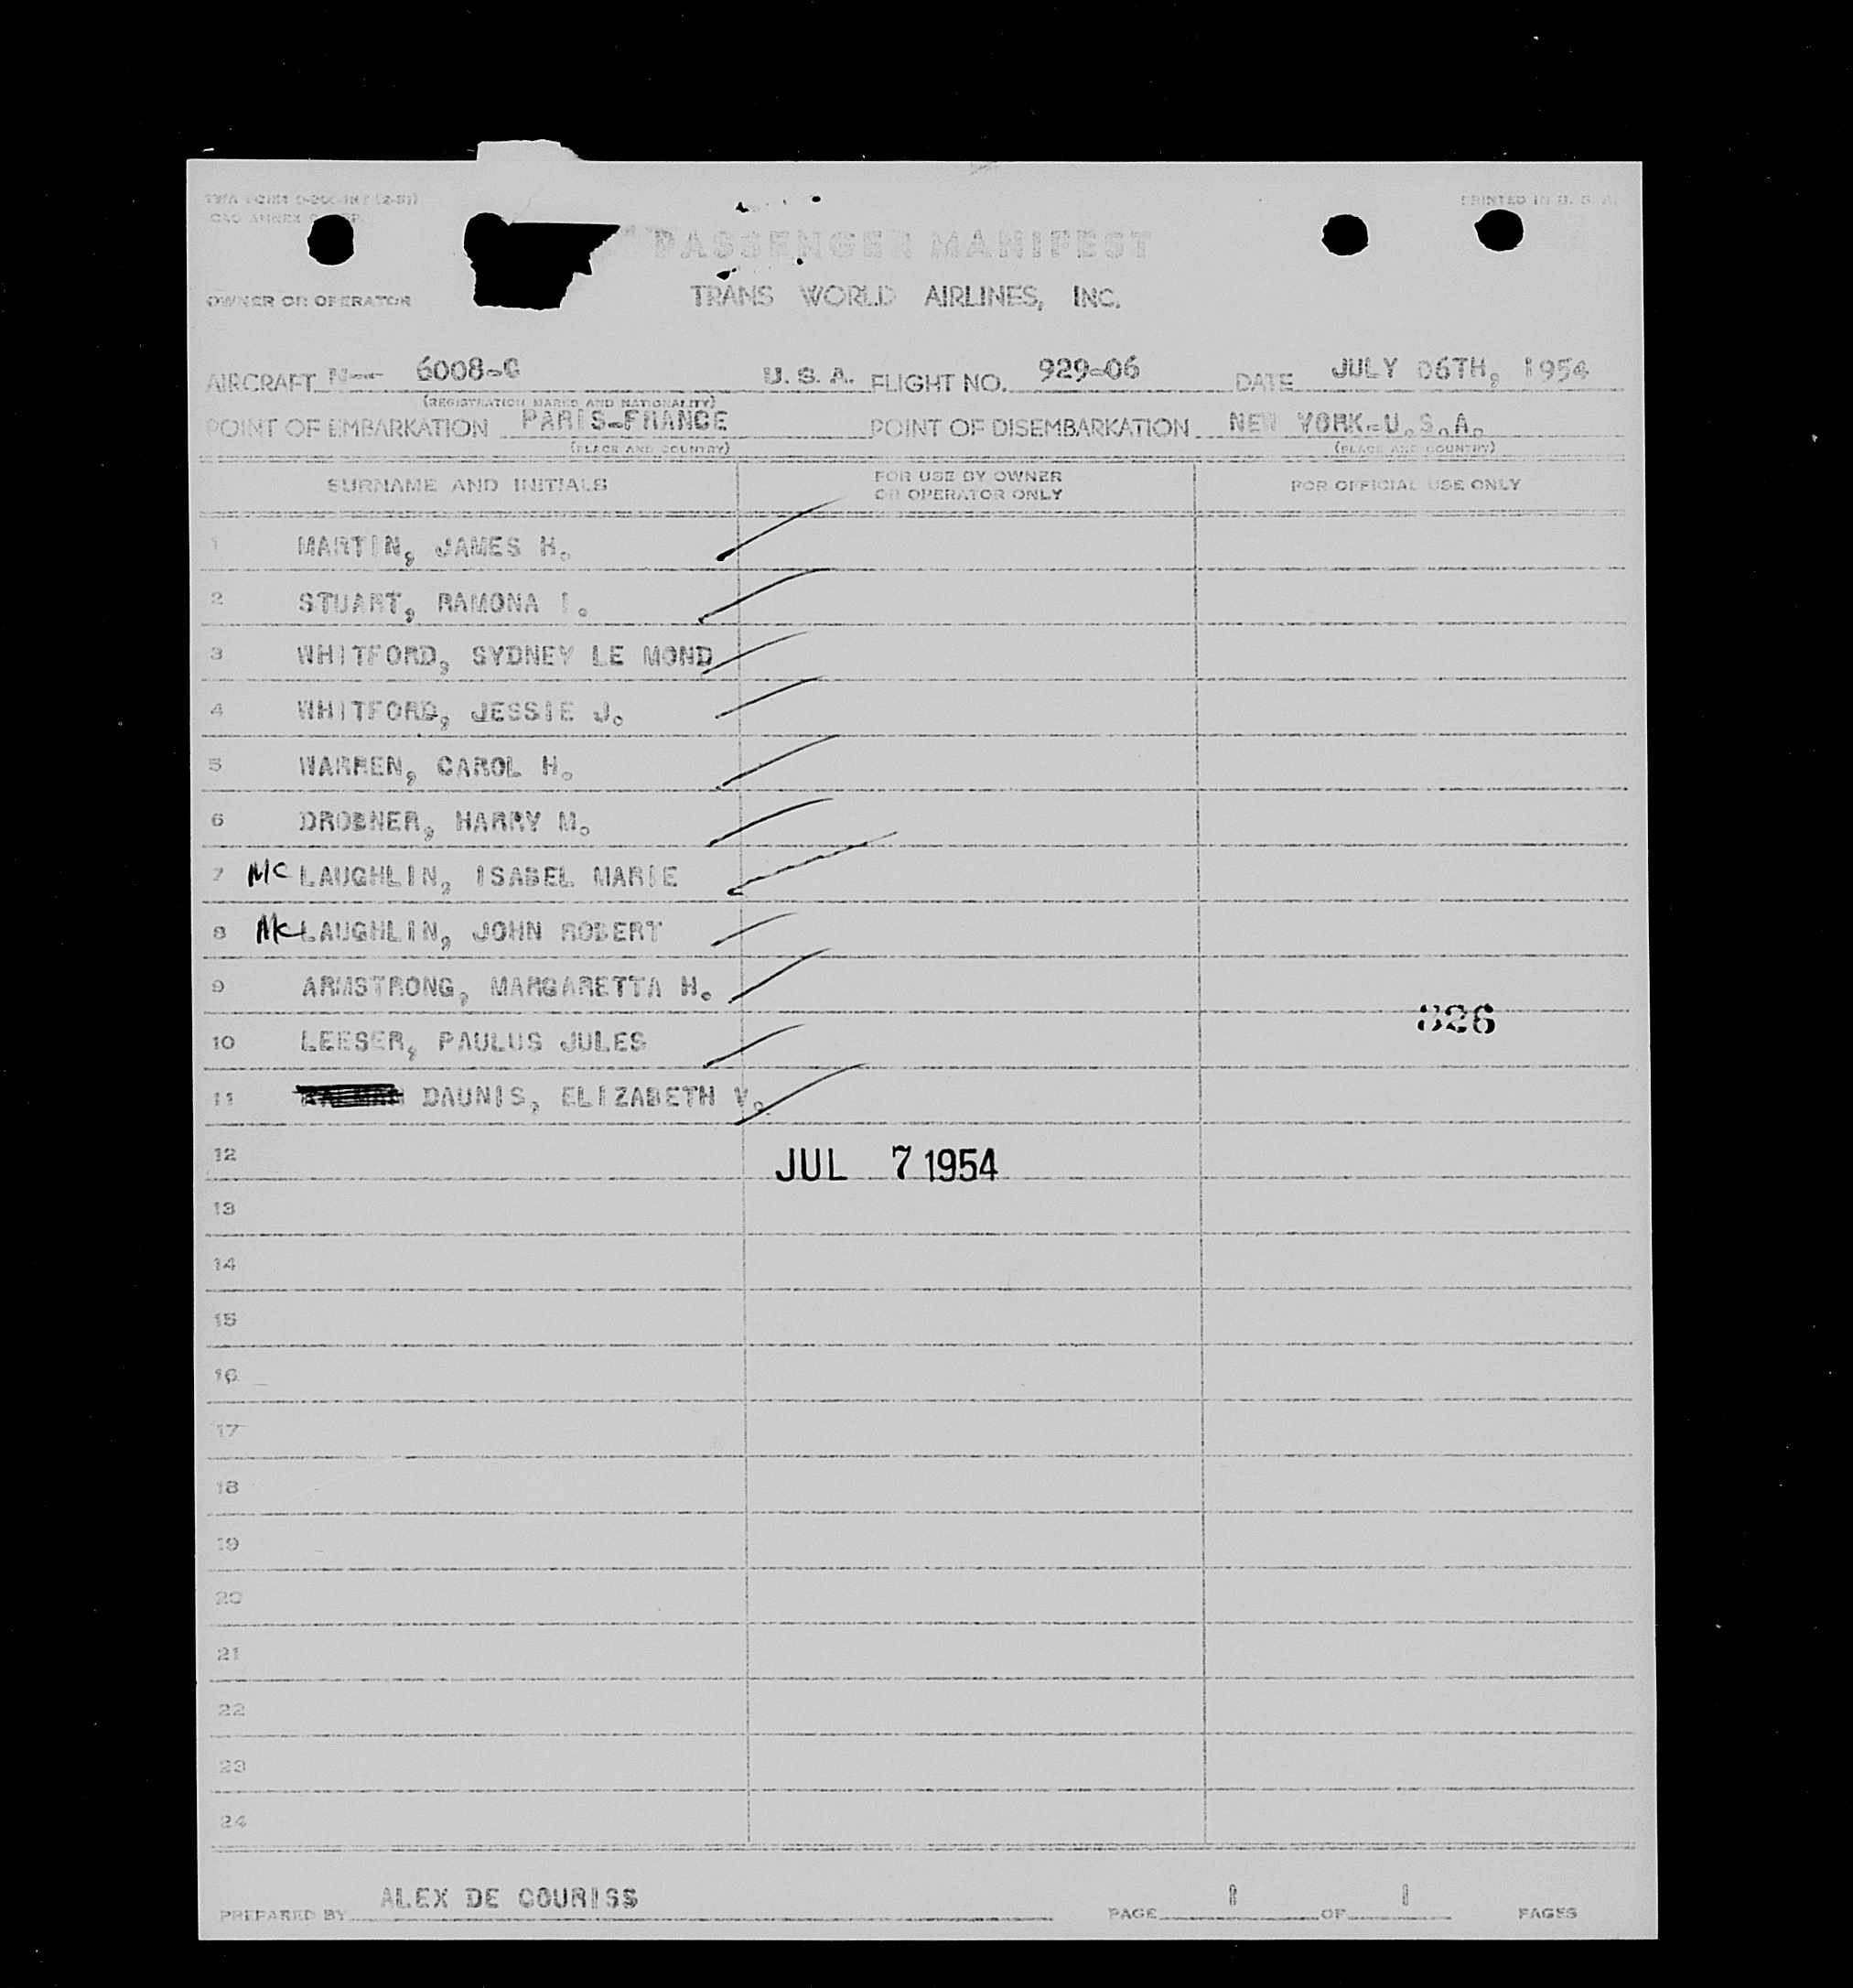 PRINTED IN U. S. A.
PASSENGER MANIFEST
OWNER OR OPERATOR
TRANS WORLD AIRLINES, INC.
AIRCRAFT N-- 6008-C U. S. A. FLIGHT NO. 929-06 DATE JULY 06TH, 1954
(REGISTRATION MARKS AND NATIONALITY)
POINT OF EMBARKATION PARIS-FRANCE POINT OF DISEMBARKATION NEW YORK-U.S.A.
(PLACE AND COUNTRY) (PLACE AND COUNTRY)
SURNAME AND INITIALS FOR USE BY OWNER OR OPERATOR ONLY FOR OFFICIAL USE ONLY
1 MARTIN, JAMES H.
2 STUART, RAMONA I.
3 WHITFORD, SYDNEY LE MOND
4 WHITFORD, JESSIE J.
5 WARREN, CAROL H.
6 DROBNER, HARRY M.
7 Mc LAUGHLIN, ISABEL MARIE
8 Mc LAUGHLIN, JOHN ROBERT
9 ARMSTRONG, MARGARETTA H.
326
10 LEESER, PAULUS JULES
11 DAUNIS, ELIZABETH V.
12 JUL 7 1954
13
14
15
16
17
18
19
20
21
22
23
24
PREPARED BY ALEX DE COURISS PAGE 1 OF 1 PAGES